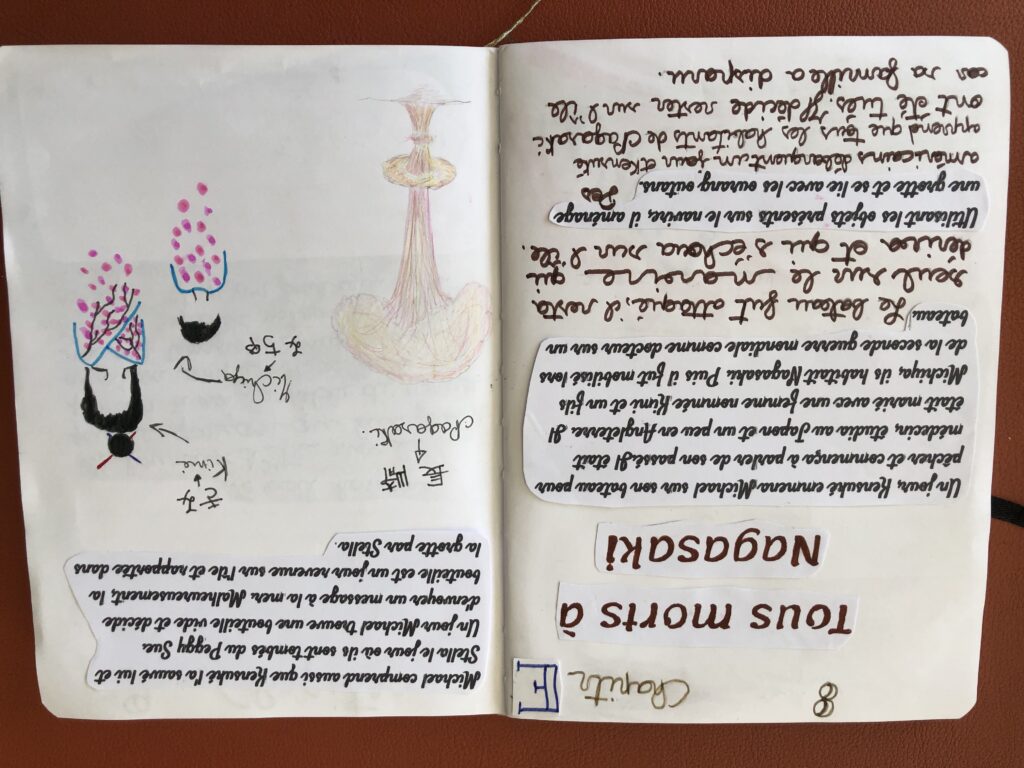 8 Chapitr E
Tous morts à
Nagasaki
Un jour, Kensuké emmena Michael sur son bateau pour
pêcher et commença à parler de son passé. Il était
médecin, étudia au Japon et un peu en Angleterre. Il
était marié avec une femme nommée Kimi et un fils
Michiya, ils habitait Nagasaki. Puis il fut mobilisé lors
de la seconde guerre mondiale comme docteur sur un
bateau.
Le bateau fut attaqué, il resta
seul sur le navire qui
dériva et qui s'échoua sur l'île.
Utilisant les objets présents sur le navire, il aménage
une grotte et se lie avec les ourang outans. Des
américains débarquent un jour et Kensuké
apprend que tous les habitants de Nagasaki
ont été tués. Il décide rester sur l'île
car sa famille a disparu.
Michael comprend aussi que Kensuké l'a sauvé lui et
Stella le jour où ils sont tombés du Peggy Sue.
Un jour Michael trouve une bouteille vide et décide
d'envoyer un message à la mer. Malheureusement, la
bouteille est un jour revenue sur l'île et rapportée dans
la grotte par Stella.
長崎
Nagasaki.
きみ
Kimi
Michiya
みちや